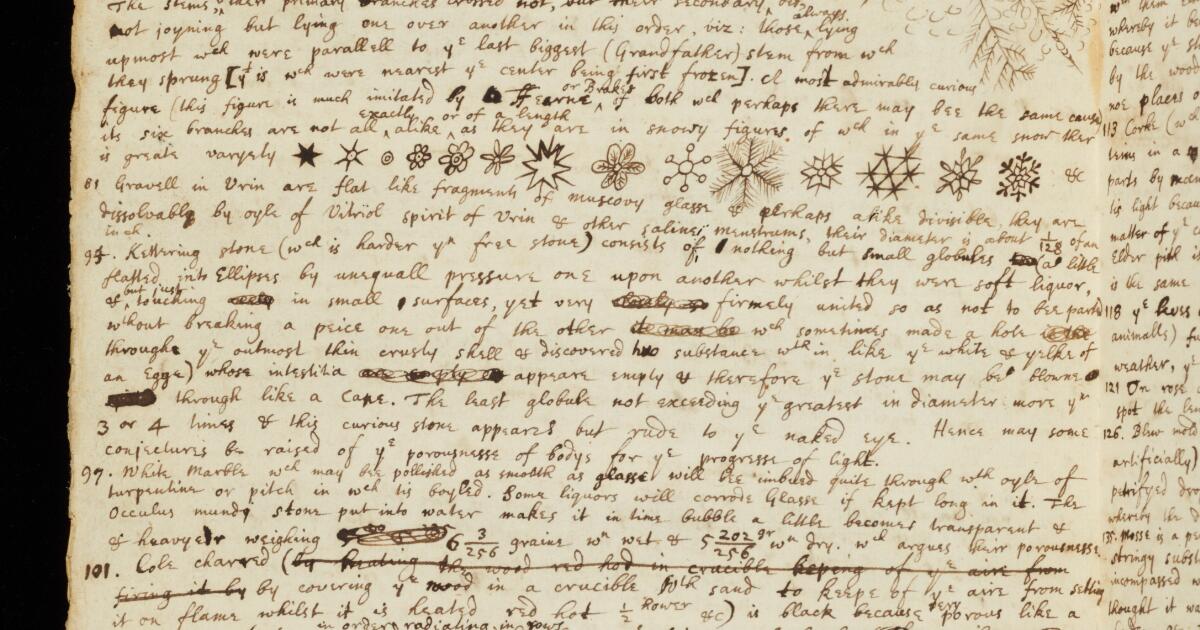 The stems their primary branches crossed not, but their secondary ones
not joyning but lying one over another in this order, viz: those always lying
upmost wch were parallell to ye last biggest (Grandfather) stem from wch
they sprung [yt is wch were nearest ye center being first frozen]. A most admirable curious
figure (this figure is much imitated by Fearne or Brakes of both wch perhaps there may bee the same cause)
its six branches are not all exactly alike or of a length as they are in snowy figures, of wch in ye same snow ther
is greate varyety &c
81 Gravell in Urin are flat like fragments of muscovy glasse & perhaps alike divisible, they are
dissolvable by oyle of Vitriol spirit of Urin & other saline menstruums, their diameter is about 1/128 of an
inch.
94. Kettering stone (wch is harder yn free stone) consists of nothing but small globules (a little
flatted into Ellipses by unequall pressure one upon another whilst they were soft liquor,
& but just touching in small surfaces, yet very firmely united so as not to bee parted
wthout breaking a peice one out of the other wch sometimes made a hole
through ye outmost thin crusty shell & discovered two substance wthin like ye white & yelke of
an Egge) whose intestitia appeare empty & therefore ye stone may be blowne
through like a Cane. The least globule not exceeding ye greatest in diameter more yn
3 or 4 times & this curious stone appeares but rude to ye naked eye. Hence may some
conjectures be raised of ye porousnesse of bodys for ye progresse of light.
97. White Marble wch may bee pollished as smooth as glasse will bee imbued quite through wth oyle of
turpentine or pitch in wch tis boyled. Some liquors will corrode Glasse if kept long in it. The
Occulus mundi stone put into water makes it in time bubble a little becomes transparent &
& heavyer weighing 6 3/256 graine wn wet & 5 202/256 gr wn dry. wch argues their porousnesse.
101. Cole charred (by heating the wood red hot in crucible keeping of ye aire from
firing it by by covering ye wood in a crucible wth sand to keepe of ye aire from setting
it on flame whilst it is heated red hot 1/2 hower &c) is black because very porous like a
in order radiating in rows
whereby it
because ye
by the wood
noe places
113 Corke (wch
tems in a
parts by
tis light becau
matter of ye
Elder pith is
is the same
118 ye
animalls)
weather, ye
121 On rose
spot the
126. Blew mold
artificially)
petrifyed
whereby the
135. Mosse is a
stringy subst
incompassed
thought it wa